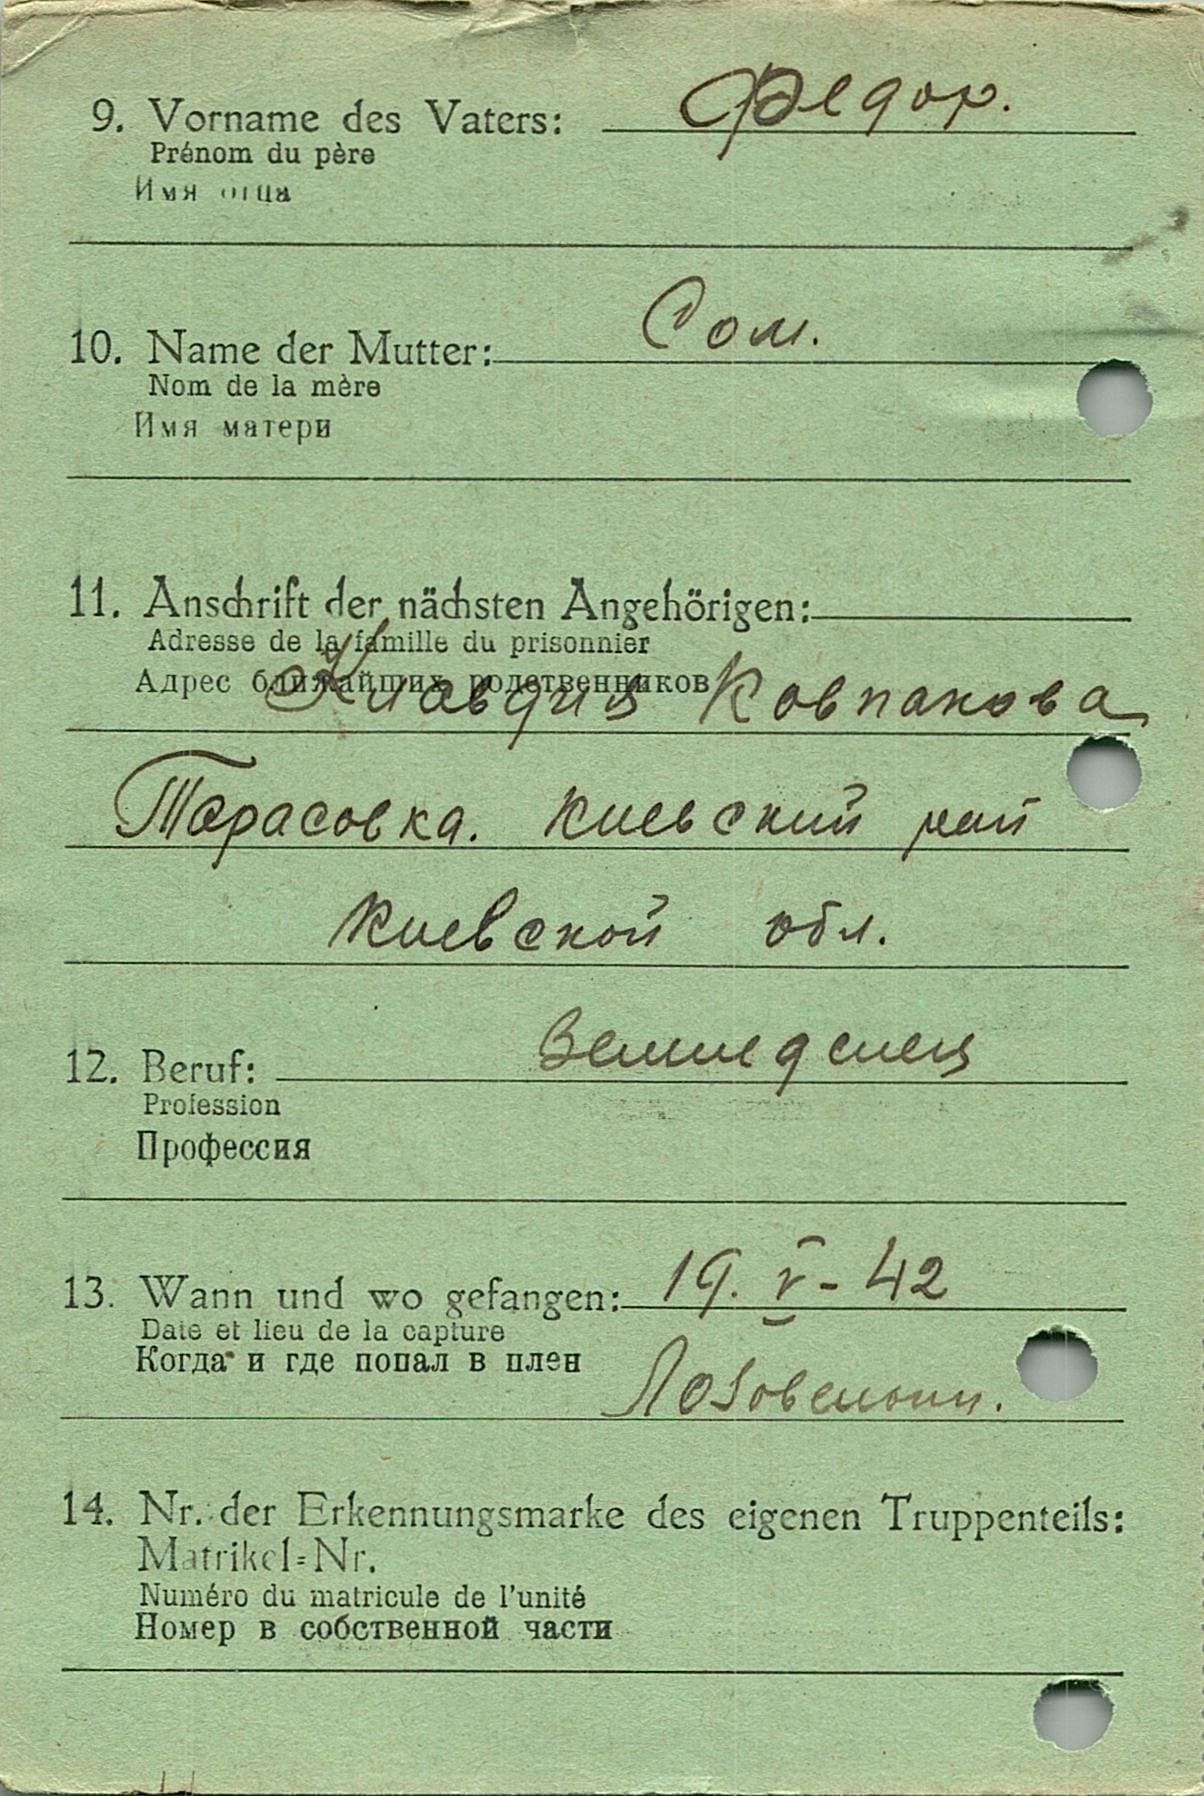 9. Vorname des Vaters: Федор.
Prénom du père
Имя отца
10. Name der Mutter: Сом.
Nom de la mère
Имя матери
11. Anschrift der nächsten Angehörigen:
Adresse de la famille du prisonnier
Адрес ближайших родственников
Клавдия Ковпакова
Тарасовка. Киевский рай
Киевской обл.
12. Beruf: Земледелец
Profession
Профессия
13. Wann und wo gefangen: 19. V - 42
Date et lieu de la capture
Когда и где попал в плен
14. Nr. der Erkennungsmarke des eigenen Truppenteils:
Matrikel=Nr.
Numéro du matricule de l'unité
Номер в собственной части